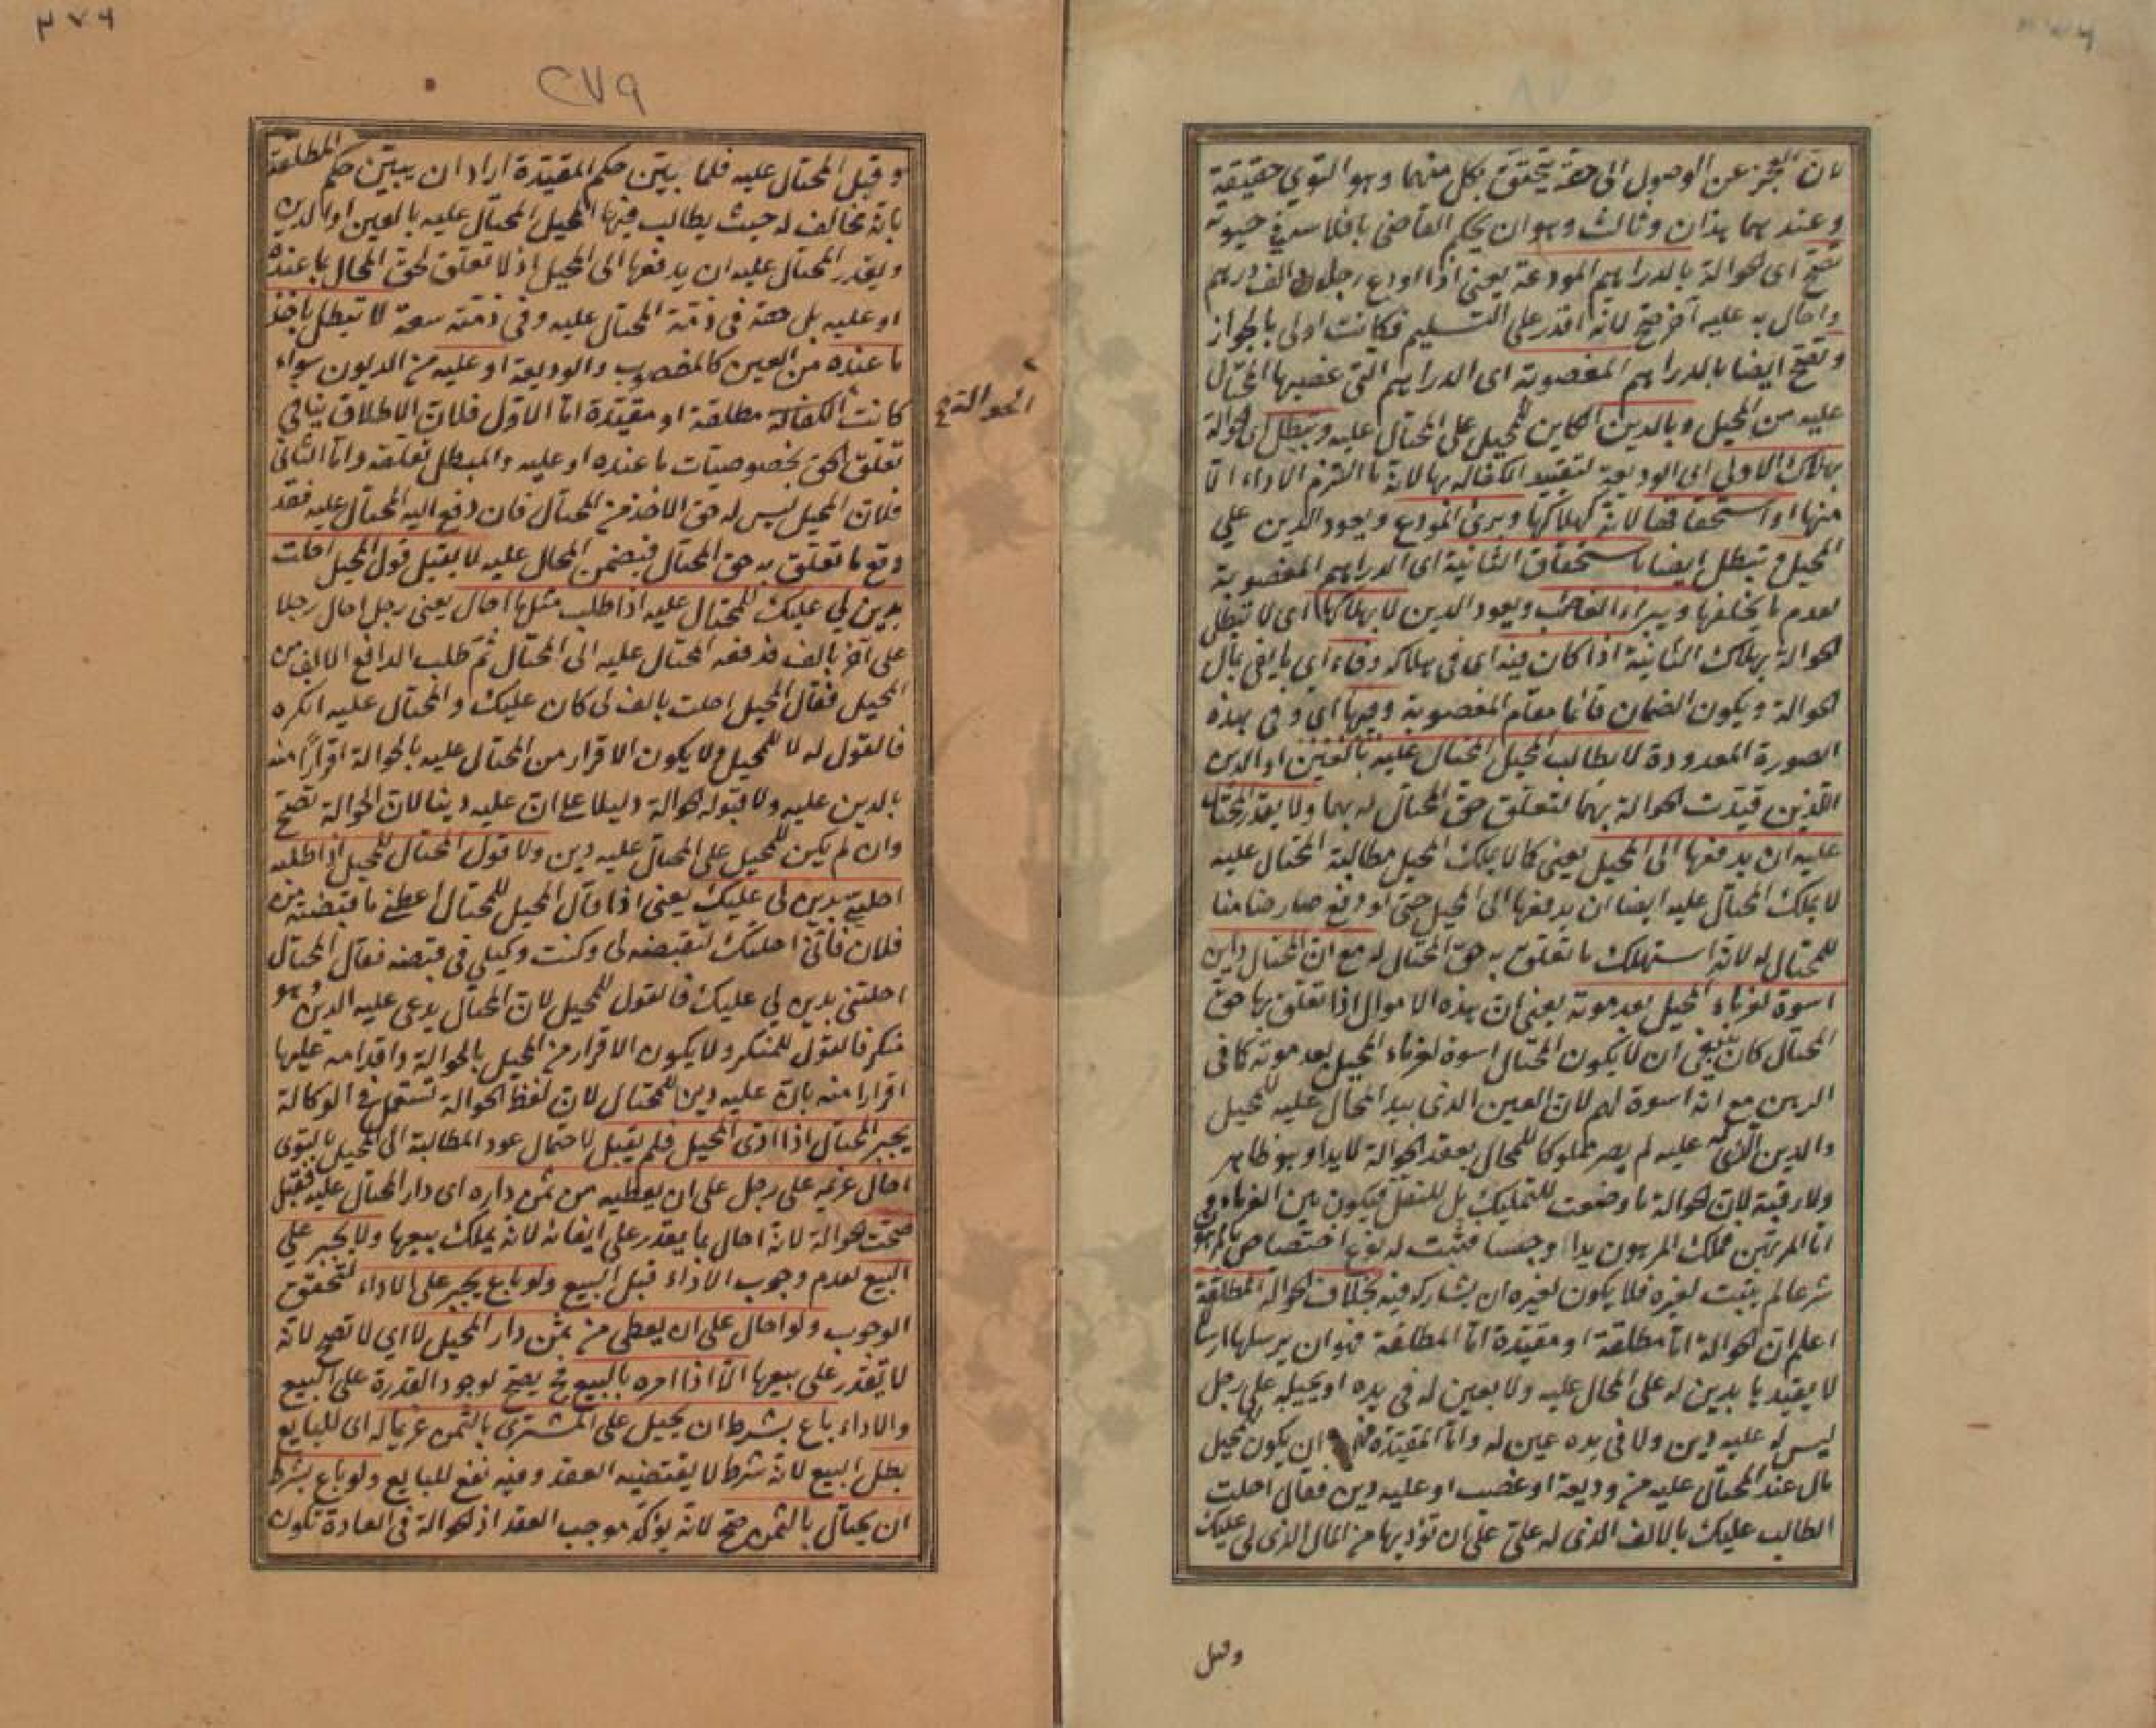 لان العجز عن الوصول الى حقه يتحقق بكل منهما وهو التوي حقيقة
وعندهما هذان وثالث وهو ان يحكم القاضي بافلاسه في حيوته
تصح اى الحوالة بالدراهم المودعة يعنى اذا اودع رجل الف درهم
واحال به عليه آخر صح لانه اقدر على التسليم فكانت اولى بالجواز
وتصح ايضا بالدراهم المغصوبة اى الدراهم التى غصبها المحتال
عليه من المحيل وبالدين الكاين للمحيل على المحتال عليه ويبطل اى الحوالة
بهلاك الاولى اى الوديعة لتقييد الكفالة بها لانه ما التزم الاداء الا
منها او استحقاقها لانه كهلاكها وبرئ المودع ويعود الدين على
المحيل وتبطل ايضا باستحقاق الثانية اى الدراهم المغصوبة
لعدم ما يخلفها ويبرء الغاصب ويعود الدين لا بهلاكها اى لا تبطل
الحوالة بهلاك الثانية اذا كان فيه اى فى هلاكه وفاء اى ما يفى بمال
الحوالة ويكون الضمان قائما مقام المغصوبة وفيها اى وفى هذه
الصورة المعدودة لا يطالب المحيل المحتال عليه بالعين او الدين
اللذين قيدت الحوالة بهما لتعلق حق المحتال له بهما ولا يقدر المحتال
عليه ان يدفعها الى المحيل يعنى كما لا يملك المحيل مطالبة المحتال عليه
لا يملك المحتال عليه ايضا ان يدفعها الى المحيل حتى لو دفع صار ضامنا
للمحتال له لانه استهلك ما تعلق به حق المحتال له مع ان المحتال داين
اسوة لغرماء المحيل بعد موته يعنى ان هذه الاموال اذا تعلق بها حق
المحتال كان ينبغى ان لا يكون المحتال اسوة لغرماء المحيل بعد موته كما فى
الرهن مع انه اسوة لهم لان العين الذى بيد المحال عليه للمحيل
والدين الذى له عليه لم يصر مملوكا للمحال بعقد الحوالة لا يدا وهو ظاهر
ولا رقبة لان الحوالة ما وضعت للتمليك بل للنقل فيكون بين الغرماء و
اما المرتهن فملك المرهون يدا وحبسا فيثبت له نوع اختصاص بالمرهون
شرعا لم يثبت لغيره فلا يكون لغيره ان يشاركه فيه بخلاف الحوالة المطلقة
اعلم ان الحوالة اما مطلقة او مقيدة اما المطلقة فهو ان يرسلها ارسالا
لا يقيد ها بدين له على المحال عليه ولا بعين له فى يده او يحيله على رجل
ليس له عليه دين ولا فى يده عين له واما المقيدة ان يكون للمحيل
مال عند المحتال عليه من وديعة او غصب او عليه دين فقال احلت
الطالب عليك بالالف الذى له على على ان تؤديها من المال الذى لى عليك
وقبل
٢٧٩
٣٧٦
وقبل المحتال عليه فلما بين حكم المقيدة اراد ان يبين حكم المطلقة
بانه تخالف له حيث يطالب فيها المحيل المحتال عليه بالعين او الدين
ويقدر المحتال عليه ان يدفعها الى المحيل اذ لا تعلق لحق المحال بما عنده
او عليه بل حقه فى ذمة المحتال عليه وفى ذمته سعة لا تبطل باخذ
ما عنده من العين كالمغصوب والوديعة او عليه من الديون سواء
كانت الكفالة مطلقة او مقيدة اما الاول فلان الاطلاق ينافى
تعلق الحق بخصوصيات ما عنده او عليه والمبطل تعلقه واما الثانى
فلان المحيل ليس له حق الاخذ من المحتال فان دفع اليه المحتال عليه فقد
دفع ما تعلق به حق المحتال فيضمن المحال عليه لا يقبل قول المحيل احلت
بدين لي عليك للمحتال عليه اذا طلب مثلها احال يعنى رجل احال رجلا
على آخر بالف فدفعه المحتال عليه الى المحتال ثم طلب الدافع الالف من
المحيل فقال المحيل احلت بالف لى كان عليك والمحتال عليه انكره
فالقول له لا للمحيل ولا يكون الاقرار من المحتال عليه بالحوالة اقرارا منه
بالدين عليه ولا قبوله الحوالة دليلا على ان عليه دينا لان الحوالة تصح
وان لم يكن للمحيل على المحتال عليه دين ولا قول المحتال للمحيل اذا طلبه
احلتنى بدين لى عليك يعنى اذا قال المحيل للمحتال اعطنى ما قبضته من
فلان فانى احلتك لتقبضه لى وكنت وكيلى فى قبضه فقال المحتال
احلتنى بدين لي عليك فالقول للمحيل لان المحتال يدعى عليه الدين وهو
منكر فالقول للمنكر ولا يكون الاقرار من المحيل بالحوالة واقدامه عليها
اقرارا منه بان عليه دين للمحتال لان لفظ الحوالة تستعمل فى الوكالة
يجبر المحتال اذا ادى المحيل فلم يقبل لاحتمال عود المطالبة الى المحيل بالتوى
احال غريمه على رجل على ان يعطيه من ثمن داره اى دار المحتال عليه فقبل
صحت الحوالة لانه احال بما يقدر على ايفائه لانه يملك بيعها ولا يجبر على
البيع لعدم وجوب الاداء قبل البيع ولو باع يجبر على الاداء لتحقق
الوجوب ولو احال على ان يعطى من ثمن دار المحيل لا اى لا تصح لانه
لا يقدر على بيعها الا اذا امره بالبيع فح يصح لوجود القدرة على البيع
والاداء باع بشرط ان يحيل على المشترى بالثمن غريما له اى للبايع
بطل البيع لانه شرط لا يقتضيه العقد وفيه نفع للبايع ولو باع بشرط
ان يحتال بالثمن صح لانه يؤكد موجب العقد اذ الحوالة فى العادة تكون
الحوالة